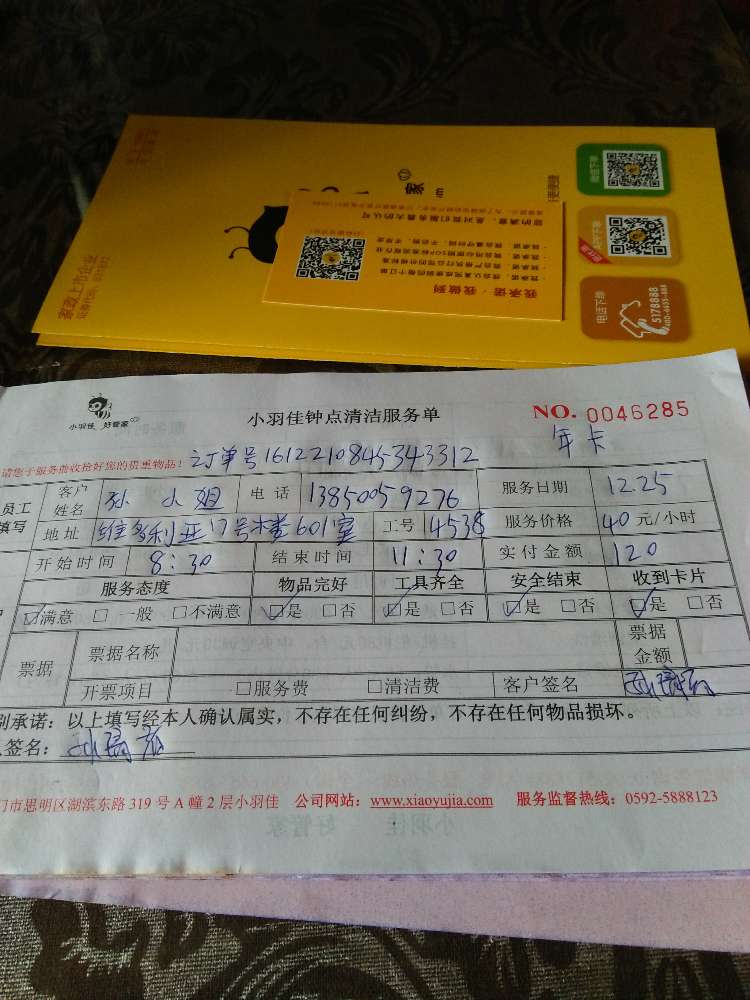 家政上市企业
微信下单
电话下单
5178888
我承诺·我做到
小羽佳 好管家
小羽佳钟点清洁服务单
NO. 0046285
年卡
请您于服务前收拾好您的贵重物品!
订单号1612210845343312
员工填写
客户姓名 孙小姐 电话 13850059276 服务日期 12.25
地址 维多利亚17号楼601室 工号 4538 服务价格 40 元/小时
开始时间 8:30 结束时间 11:30 实付金额 120
服务态度 物品完好 工具齐全 安全结束 收到卡片
☑满意 □一般 □不满意 ☑是 □否 ☑是 □否 ☑是 □否 ☑是 □否
票据 票据名称 票据金额
开票项目 □服务费 □清洁费 客户签名
别承诺:以上填写经本人确认属实,不存在任何纠纷,不存在任何物品损坏。
签名:
门市思明区湖滨东路 319 号 A 幢 2 层小羽佳 公司网站:www.xiaoyujia.com 服务监督热线:0592-5888123